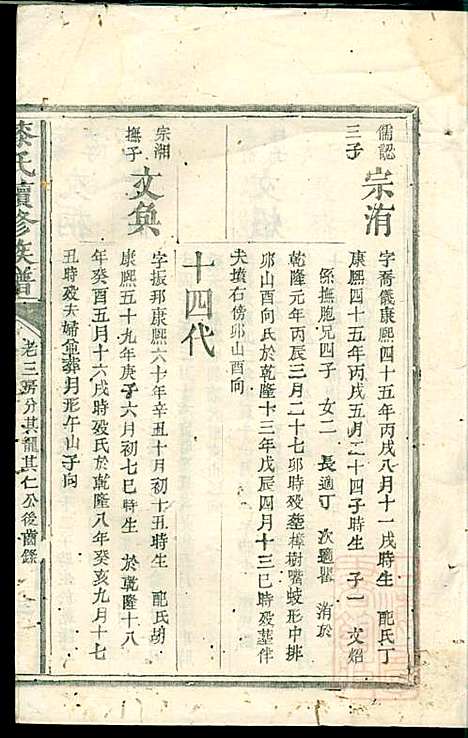 儒認三子
宗洧
字喬儀康熙四十五年丙戌八月十一戌時生 配氏丁
康熙四十五年丙戌五月二十四子時生 子一 文炤
係撫胞兄四子 女二 長適丁 次適瞿 洧於
乾隆元年丙辰三月二十七卯時殁塟樟樹嘴蛟形中排
卯山酉向氏於乾隆十三年戊辰四月十三巳時殁塟伴
夫墳右傍卯山酉向
十四代
宗湘撫子
文奐
字振邦康熙六十年辛丑十月初十五時生 配氏胡
康熙五十九年庚子六月初七巳時生 於乾隆十八
年癸酉五月十六戌時殁氏於乾隆八年癸亥九月十七
丑時殁夫婦侖葬月形午山子向
漆氏續修族譜
老三房分其龍其仁公後齒錄